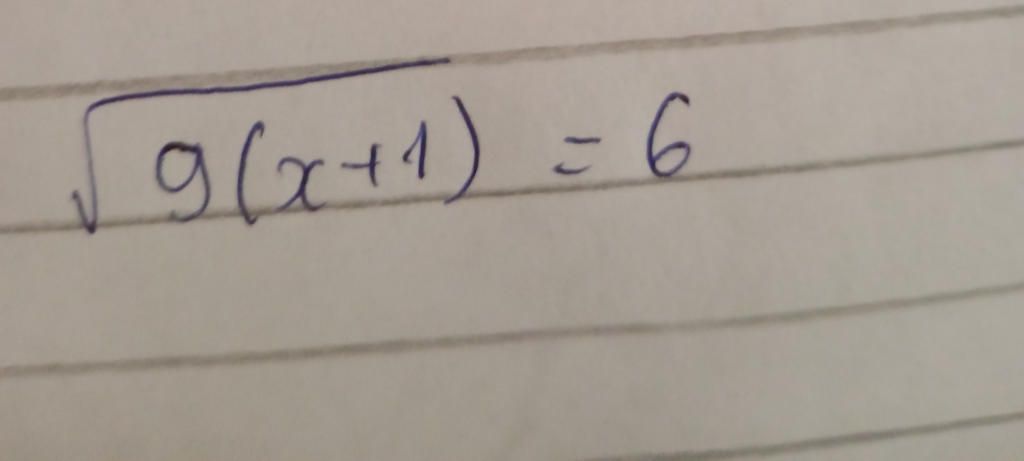 √9(x+1) = 6